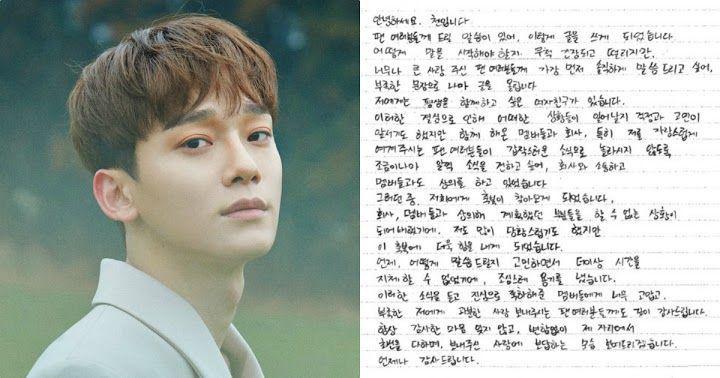 안녕하세요. 첸입니다
팬 여러분들께 드릴 말씀이 있어, 이렇게 글을 쓰게 되었습니다.
어떻게 말을 시작해야 할지 무척 긴장되고 떨리지만,
너무나 큰 사랑 주신 팬 여러분들께 가장 먼저 솔직하게 말씀드리고 싶어,
부족한 문장으로 나마 글을 올립니다
저에게는 평생을 함께하고 싶은 여자친구가 있습니다.
이러한 결심으로 인해 어떠한 상황들이 일어날지 걱정과 고민이
앞서기도 했지만 함께 해온 멤버들과 회사, 특히 저를 자랑스럽게
여겨주시는 팬 여러분들이 갑작스러운 소식으로 놀라시지 않도록
조금이나마 일찍 소식을 전하고 싶어, 회사와 소통하고
멤버들과도 상의를 하고 있었습니다
그러던 중, 저희에게 축복이 찾아오게 되었습니다.
회사, 멤버들과 상의해 계획했던 부분들을 할 수 없는 상황이
되어버렸기에. 저도 많이 당황스럽기도 했지만
이 축복에 더욱 힘을 내게 되었습니다.
언제, 어떻게 말씀드릴지 고민하면서 더이상 시간을
지체할 수 없었기에, 조심스레 용기를 냈습니다.
이러한 소식을 듣고 진심으로 축하해준 멤버들에게 너무 고맙고.
부족한 저에게 과분한 사랑 보내주시는 팬 여러분들께도 깊이 감사드립니다.
항상 감사한 마음 잊지 않고, 변함없이 제 자리에서
최선을 다하며, 보내주신 사랑에 보답하는 모습 보여드리겠습니다.
언제나 감사드립니다.